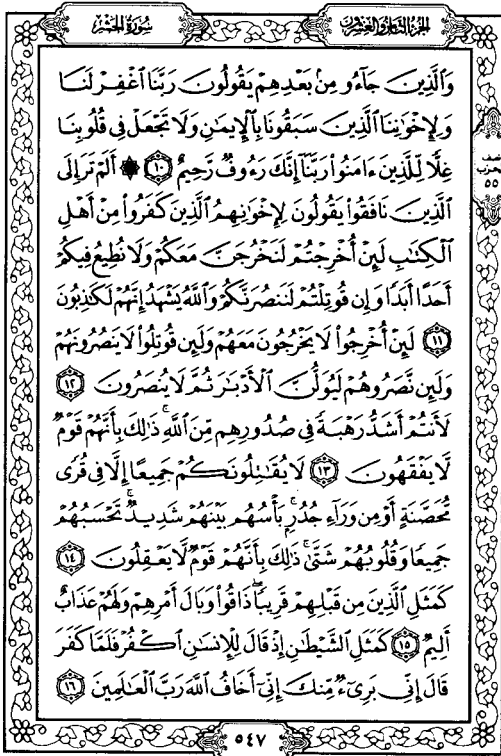 الجزء الثامن والعشرون
سورة الحشر
وَالَّذِينَ جَاءُو مِنۢ بَعْدِهِمْ يَقُولُونَ رَبَّنَا ٱغْفِرْ لَنَا
وَلِإِخْوَٰنِنَا ٱلَّذِينَ سَبَقُونَا بِٱلْإِيمَٰنِ وَلَا تَجْعَلْ فِى قُلُوبِنَا
غِلًّا لِّلَّذِينَ ءَامَنُوا۟ رَبَّنَآ إِنَّكَ رَءُوفٌ رَّحِيمٌ ١٠ ۞ أَلَمْ تَرَ إِلَى
ٱلَّذِينَ نَافَقُوا۟ يَقُولُونَ لِإِخْوَٰنِهِمُ ٱلَّذِينَ كَفَرُوا۟ مِنْ أَهْلِ
ٱلْكِتَٰبِ لَئِنْ أُخْرِجْتُمْ لَنَخْرُجَنَّ مَعَكُمْ وَلَا نُطِيعُ فِيكُمْ
أَحَدًا أَبَدًا وَإِن قُوتِلْتُمْ لَنَنصُرَنَّكُمْ وَٱللَّهُ يَشْهَدُ إِنَّهُمْ لَكَٰذِبُونَ
١١ لَئِنْ أُخْرِجُوا۟ لَا يَخْرُجُونَ مَعَهُمْ وَلَئِن قُوتِلُوا۟ لَا يَنصُرُونَهُمْ
وَلَئِن نَّصَرُوهُمْ لَيُوَلُّنَّ ٱلْأَدْبَٰرَ ثُمَّ لَا يُنصَرُونَ ١٢
لَأَنتُمْ أَشَدُّ رَهْبَةً فِى صُدُورِهِم مِّنَ ٱللَّهِ ذَٰلِكَ بِأَنَّهُمْ قَوْمٌ
لَّا يَفْقَهُونَ ١٣ لَا يُقَٰتِلُونَكُمْ جَمِيعًا إِلَّا فِى قُرًى
مُّحَصَّنَةٍ أَوْ مِن وَرَآءِ جُدُرٍۭ بَأْسُهُم بَيْنَهُمْ شَدِيدٌ تَحْسَبُهُمْ
جَمِيعًا وَقُلُوبُهُمْ شَتَّىٰ ذَٰلِكَ بِأَنَّهُمْ قَوْمٌ لَّا يَعْقِلُونَ ١٤
كَمَثَلِ ٱلَّذِينَ مِن قَبْلِهِمْ قَرِيبًا ذَاقُوا۟ وَبَالَ أَمْرِهِمْ وَلَهُمْ عَذَابٌ
أَلِيمٌ ١٥ كَمَثَلِ ٱلشَّيْطَٰنِ إِذْ قَالَ لِلْإِنسَٰنِ ٱكْفُرْ فَلَمَّا كَفَرَ
قَالَ إِنِّى بَرِىٓءٌ مِّنكَ إِنِّىٓ أَخَافُ ٱللَّهَ رَبَّ ٱلْعَٰلَمِينَ ١٦
٥٤٧
نصف
الحزب
٥٥